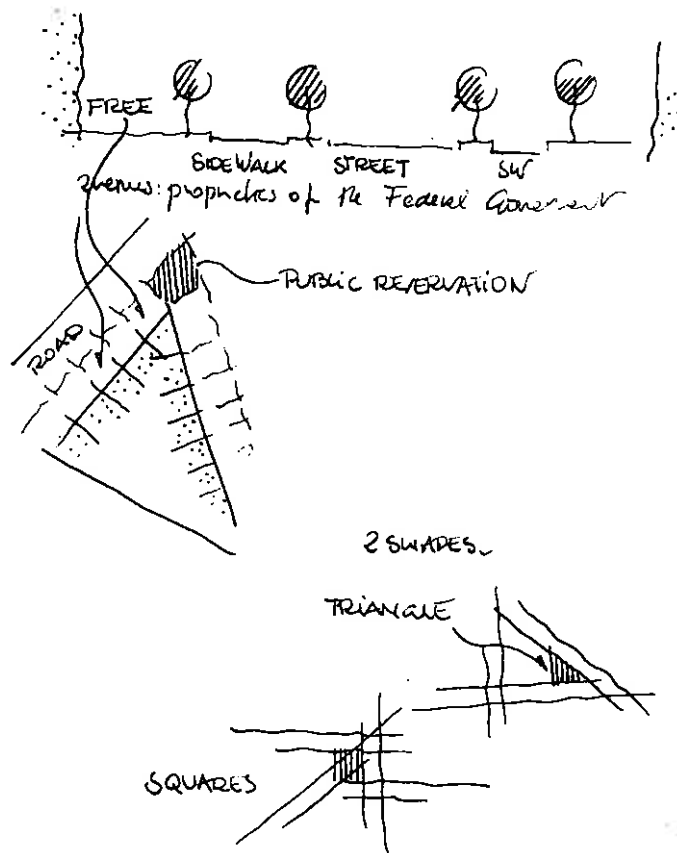 FREE
SIDEWALK STREET SW
of the Federal Government
PUBLIC RESERVATION
ROAD
2 SWADES
TRIANGLE
SQUARES